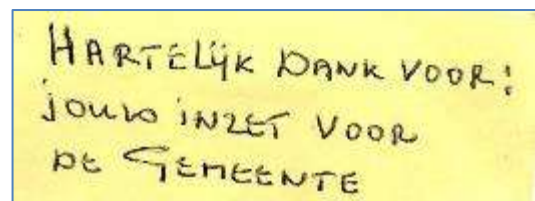 HARTELIJK DANK VOOR:
jouw iNZET VOOR
DE GEMEENTE